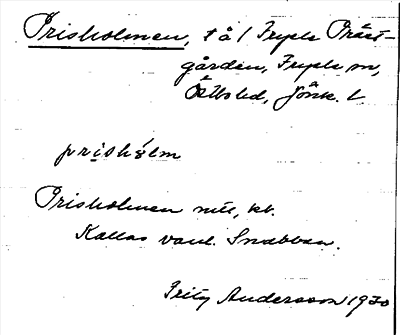 Prisholmen, tå i Fryele Präst-
gården, Fryele sn,
Östbo hd, Jönk. l
prishòlm
Prisholmen nll, kb.
Kallas vanl. Snabban.
Fritz Andersson 1930